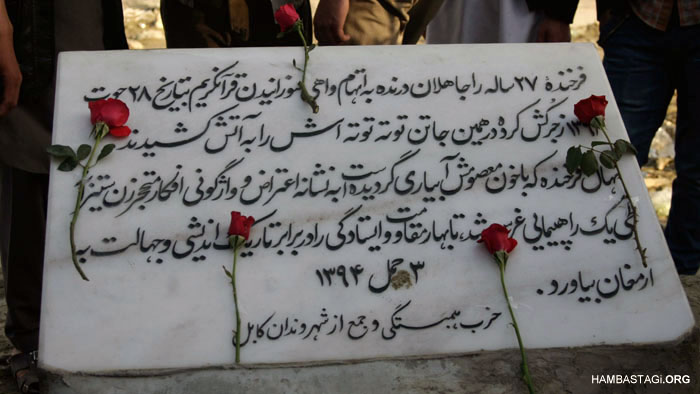 فرخندهٔ ۲۷ ساله را جاهلان درنده به اتهام واهی سوزانیدن قرآنکریم بتاریخ ۲۸ حوت
زجرکش کرده در همین جا تن توته توته اش را به آتش کشیدند.
نهال فرخنده که با خون معصومش آبیاری گردیده است به نشانه اعتراض و واژگونی افکار متحجر زن ستیز
طی یک راهپیمایی غرس شد، تا بهار مقاومت و ایستادگی را در برابر تاریک اندیشی و جهالت به
ارمغان بیاورد.
۳ حمل ۱۳۹۴
حزب همبستگی و جمع از شهروندان کابل
HAMBASTAGI.ORG